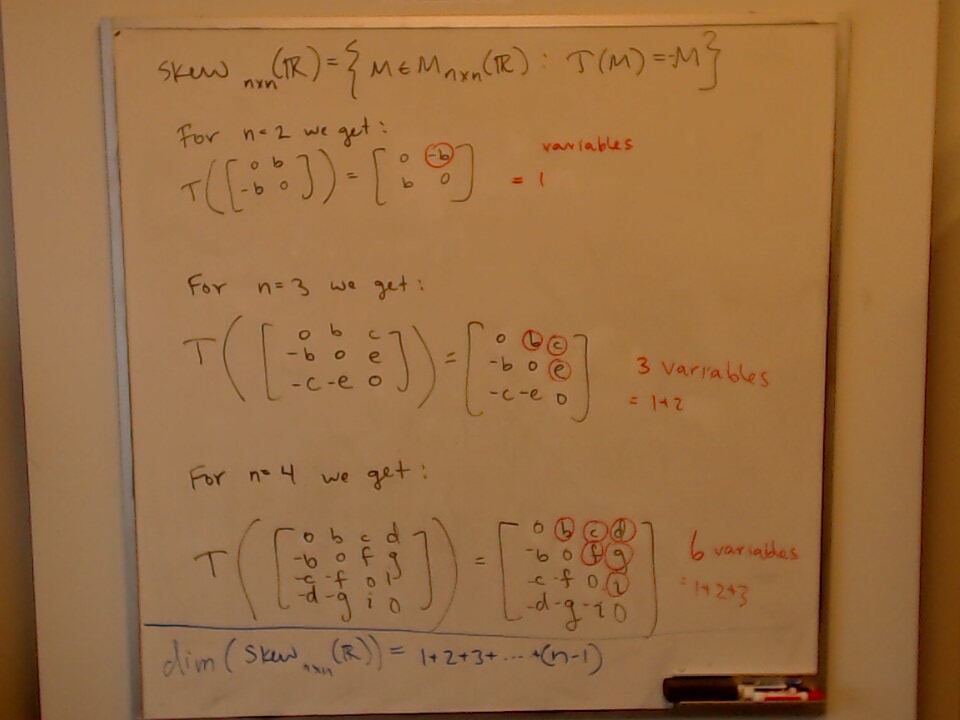 Skew n×n (ℝ) = { M ∈ M n×n (ℝ) : T(M) = -M }
For n=2 we get:
variables
T([0 b
-b 0]) = [0 -b
b 0]
= 1
For n=3 we get:
T([0 b c
-b 0 e
-c -e 0]) = [0 b c
-b 0 e
-c -e 0]
3 variables
= 1+2
For n=4 we get:
T([0 b c d
-b 0 f g
-c -f 0 i
-d -g i 0]) = [0 b c d
-b 0 f g
-c -f 0 i
-d -g -i 0]
6 variables
= 1+2+3
dim (Skew n×n (ℝ)) = 1+2+3+ ··· +(n-1)